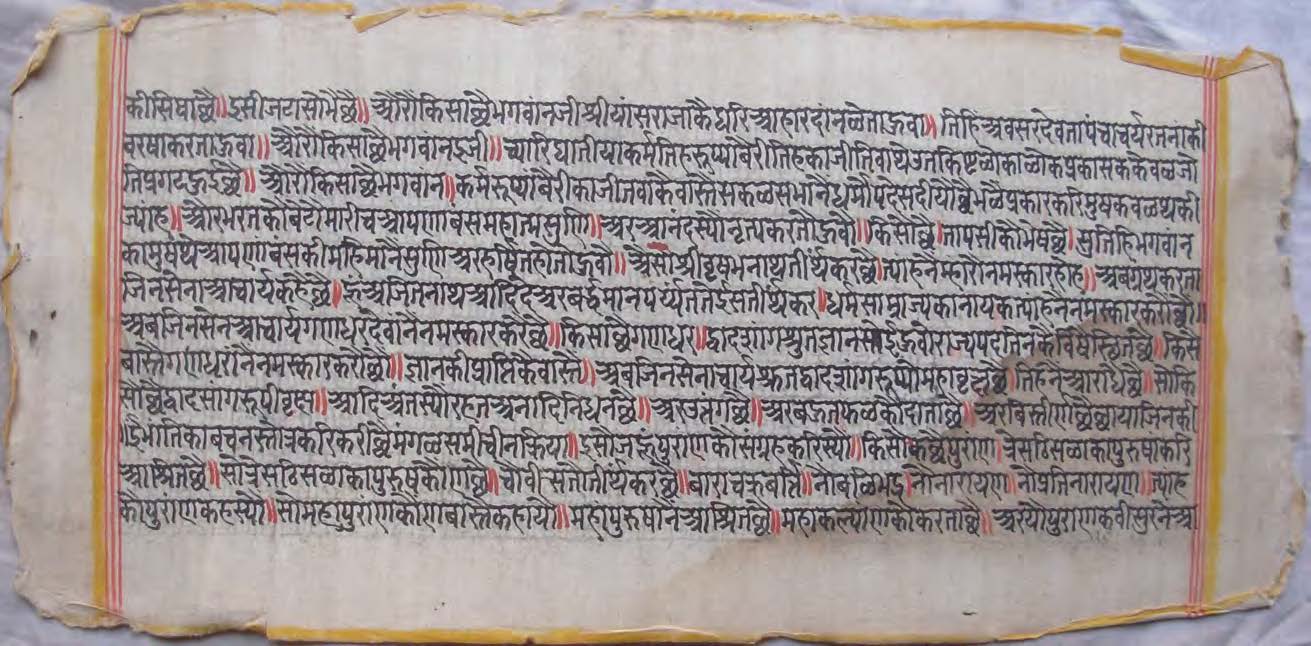 कीसिषाछै॥इसीजटासोभैछै॥औरौंकिसाछैभगवांनजीश्रीयांसराजाकैघरिआहारदांनळेताहुवा॥तिहिअवसरदेवतापंचाचर्यरतनांकी
वरषाकरताहुवा॥औरौंकिसाछैभगवांनइजी॥च्यारिघातीयाकर्मतिहरूप्पांबैरीतिहकाजीतिवाथे
तिप्रगटहुईछै॥औरौंकिसाछैभगवान॥कर्मरूप्यांबैरीकाजीतवाकैवास्तैसकळसभानैधर्मोपदेसदीयो
ज्यांह॥औरभरतकोबेटोमारीचआपणाबसमहात्मसुणि॥अरआनंदस्यौनृत्यकरतौहुवौ॥किसोछै॥तापसीकोभेषछै॥सुतिहिभगवांन
कामुषथेआपणाबंसकीमहिमानैसुणिअरहर्षितहोतोहुवौ॥असोश्रीवृषभनाथतीर्थंकरछै॥ज्यांहनैम्हारौनमस्कारहोह॥अबग्रंथकरता
जिनसेनाआचार्यकहैछै॥हूंअजितनाथआदिदेअरबर्द्धमानपर्य्यंततेईसतीर्थंकर॥धर्मसाम्राज्यकानायकत्यांहनैनमस्कारकरौछौ॥
अबजिनसेनआचार्यगणधरदेवांनैनमस्कारकरैछै॥किसाछैगणधर॥द्वादशांगश्रुतज्ञान
बास्तैगणधरांनैनमस्कारकरौछौ॥ज्ञानकीप्राप्तिकैवास्तै॥अबजिनसेनाचार्यश्रुतद्वादशांगरूप्पोमहावृक्षछैतिहनैआराधैछै॥सोकि
सोछैद्वादसांगरूपीवृक्ष॥आदिअंतस्यौरहतअनादिनिधनछै॥अरउत्तंगछै॥अरबहुतफळकौदाताछै॥अरबिस्तीर्णछैछायाजिनकी
भांतिकाबचनस्तोत्रकरिकरीछैमंगळसमीचीनक्रिया॥इसोजहूंपुरांणकोसंग्रहकरिस्यौ॥किसोकछैपुरांण॥त्रेसठिसळाकापुरुषांकरि
आश्रितछै॥सोत्रेसठिसळाकापुरुषकोणछै॥चौवीसतौतीर्थंकरछै॥बाराचक्रवर्ति॥नौबळिभद्र॥नौनारायण॥नौप्रतिनारायण॥ज्यांह
कौपुरांणकहस्यौ॥सोमहापुरांणकौणबास्तैकहायौ॥महापुरुषांनैआश्रितछै॥महाकल्याणकौकरताछै॥अरयौपुराणकवीसुरनैआ